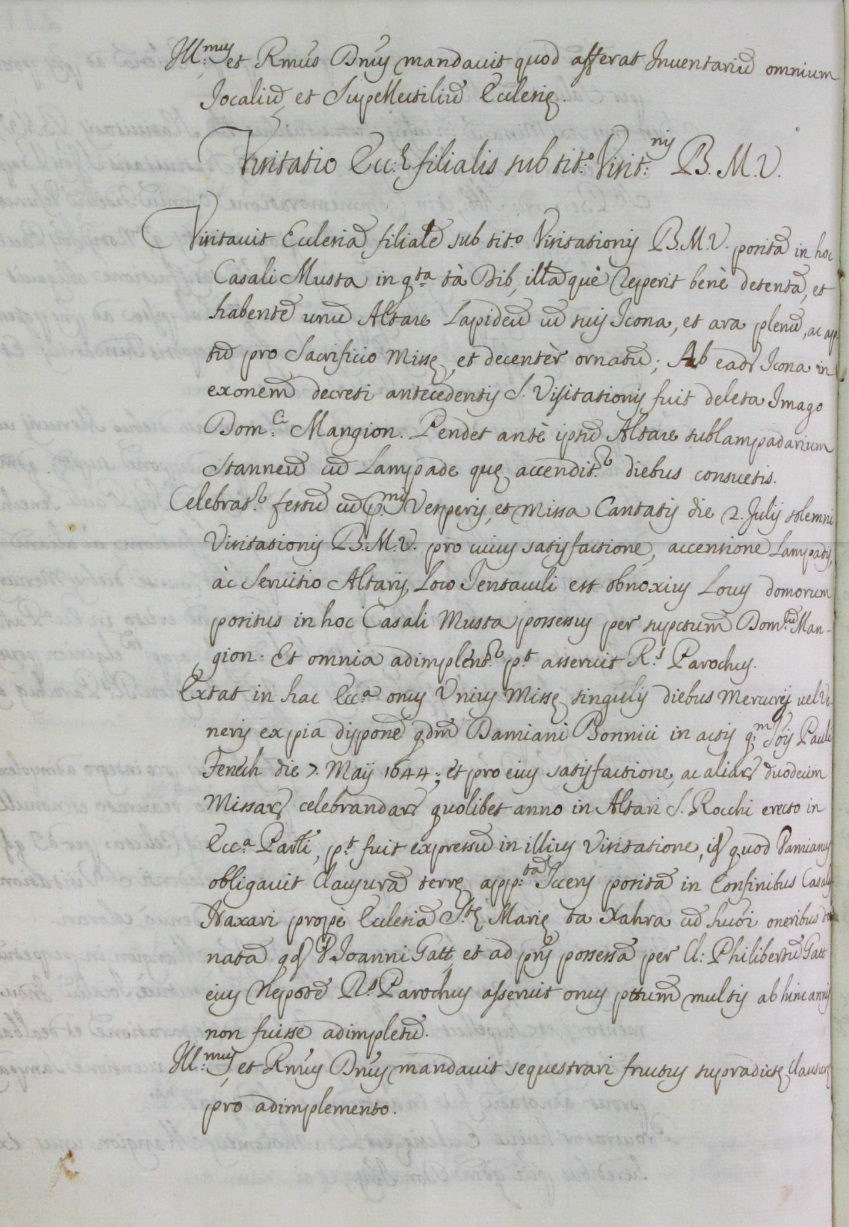 Ill:mus et Rmus Dnus mandavit quod afferat Inventariũ omnium
Jocaliũ et Supellectiliũ Eccleie.
Visitatio Ecc:æ filialis sub tit.o Visit:nis B. M. V.
Visitavit Ecclesiã filialẽ sub tit.o Visitationis B. M. V. positã in hoc
Casali Musta in q.ta tà Dib, illãquè reperit benè detentã, et
habentẽ unũ Altare Lapideũ cũ suis Icona, et ara plenũ, ac ap
tũ pro Sacrificio Missę, et decentèr ornatũ; Ab eadẽ Icona in
exonem̃ decreti antecedentis S. Visitationis fuit deleta Imago
Dom:ci Mangion. Pendet antè ipsũ Altare sublampadarium
Stanneũ cũ Lampade quę accendit.r diebus consuetis.
Celebrat.r festũ cũ p:mis Vesperis, et Missa Cantatis die 2. Julij solemni
Visitationis B. M. V. pro cuius satisfactione, accensione Lampadis,
àc Servitio Altaris, Loco Tentaculi est obnoxius Locus domorum
positus in hoc Casali Musta possessus per supctum Dom:cũ Man-
gion. Et omnia adimplent.r p.t asseruit R.s Parochus.
Extat in hac Ecc.a onus Unius Missę singulis diebus Mercurij vel Ve-
neris ex pia dispone q̃dm Damiani Bonnici in actis q.m Jois Pauli
Fenech die 7. Maij 1644; et pro eius satisfactione, ac aliarũ duodecim
Missarũ celebrandarũ quolibet anno in Altari S. Rocchi erecto in
Ecc.a Parli, p.t fuit expressũ in illius Visitatione, is quod Damianus
obligavit Clausurã terrę appe:tã Iceys positã in Confinibus Casalis
Naxari propè Ecclesiã S.tę Marię ta Xahra cũ hui oneribus do
natã q̃d D Joanni Gatt, et ad pñs possessã per Cl: Philibertũ Gatt
eius Nepotẽ R.s Parochus asseruit onus pttum multis ab hinc annis
non fuisse adimpletũ.
Ill:mus, et Rmus Dnus mandavit sequestrari fructus supradictę Clausurę
pro adimplemento.